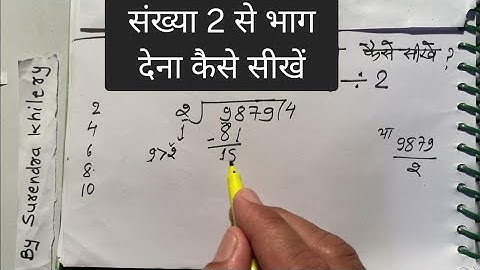 संख्या 2 से भाग
देना कैसे सीखें
कैसे सीखें ?
÷ 2
2
4
6
8
10
2 9879 4
- 8
15
9 > 2
या 9879
2
By Surendra Khilery